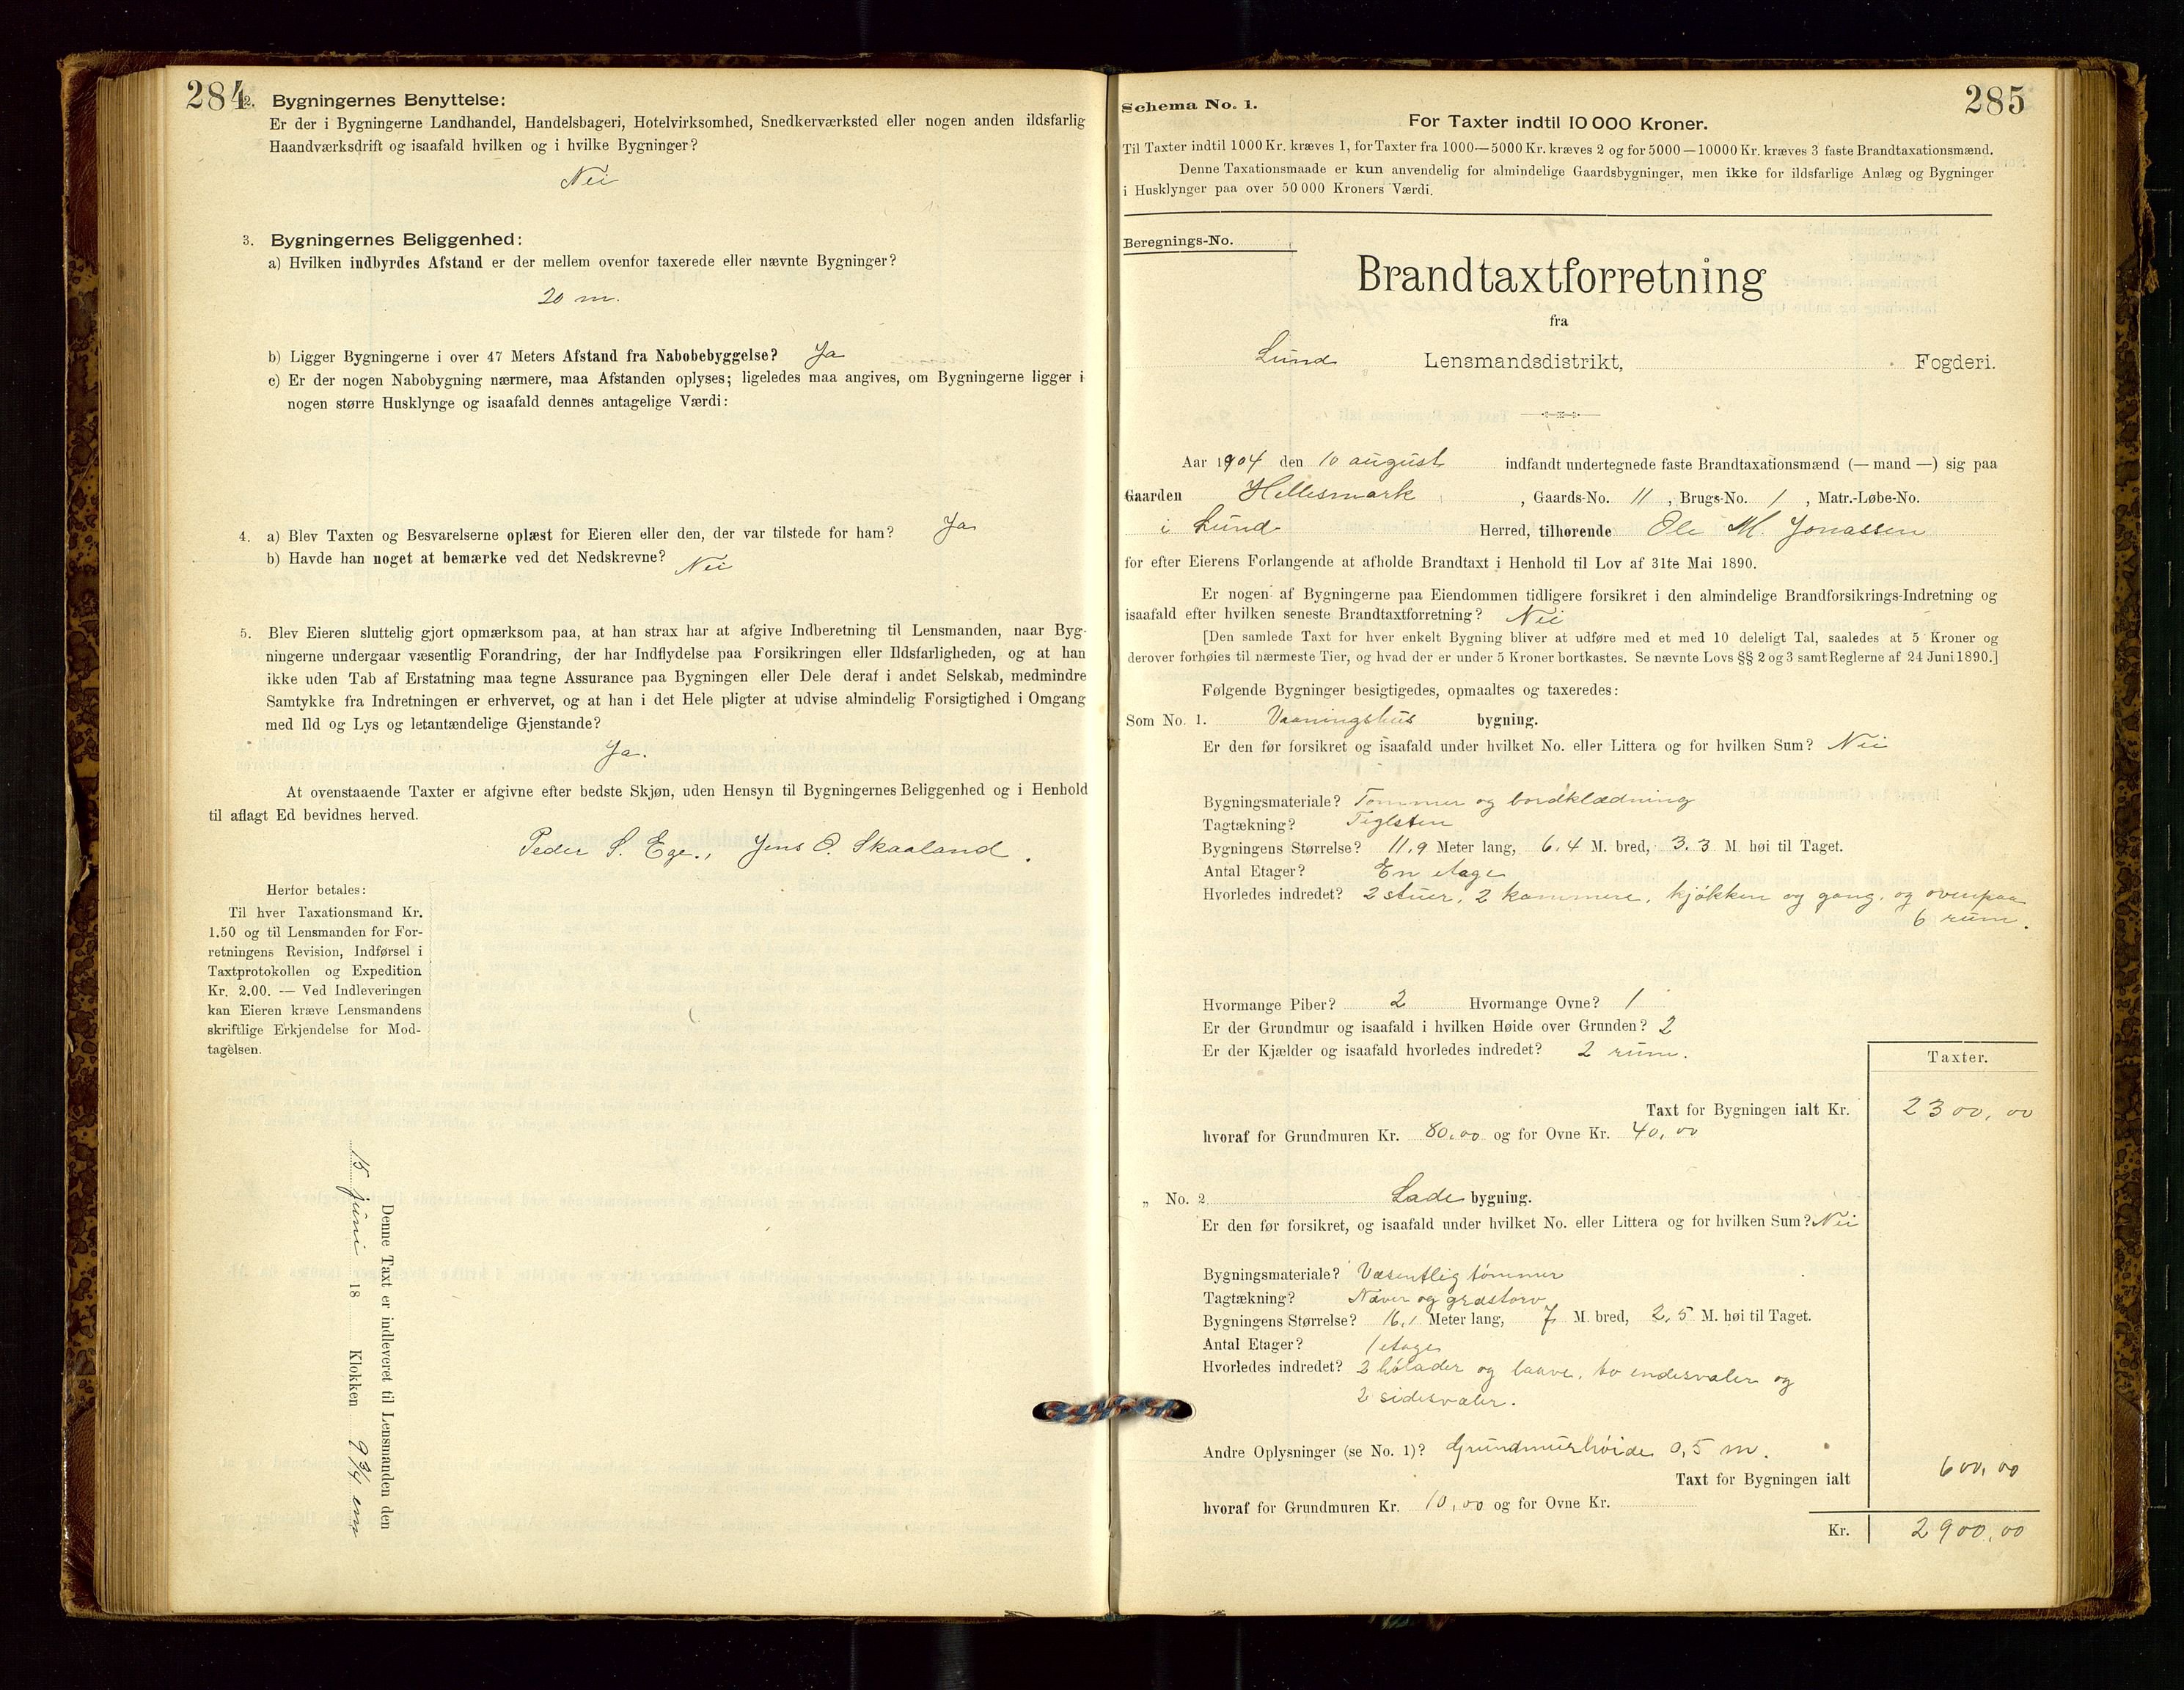 284
2. Bygningernes Benyttelse:
Er der i Bygningerne Landhandel, Handelsbageri, Hotelvirksomhed, Snedkerværksted eller nogen anden ildsfarlig
Haandværksdrift og isaafald hvilken og i hvilke Bygninger?
Nei
3. Bygningernes Beliggenhed:
a) Hvilken indbyrdes Afstand er der mellem ovenfor taxerede eller nævnte Bygninger?
20 m.
b) Ligger Bygningerne i over 47 Meters Afstand fra Nabobebyggelse? Ja
c) Er der nogen Nabobygning nærmere, maa Afstanden oplyses; ligeledes maa angives, om Bygningerne ligger i
nogen større Husklynge og isaafald dennes antagelige Værdi:
4. a) Blev Taxten og Besvarelserne oplæst for Eieren eller den, der var tilstede for ham? Ja
b) Havde han noget at bemærke ved det Nedskrevne? Nei
5. Blev Eieren sluttelig gjort opmærksom paa, at han strax har at afgive Indberetning til Lensmanden, naar Byg-
ningerne undergaar væsentlig Forandring, der har Indflydelse paa Forsikringen eller Ildsfarligheden, og at han
ikke uden Tab af Erstatning maa tegne Assurance paa Bygningen eller Dele deraf i andet Selskab, medmindre
Samtykke fra Indretningen er erhvervet, og at han i det Hele pligter at udvise almindelig Forsigtighed i Omgang
med Ild og Lys og letantændelige Gjenstande?
Ja.
At ovenstaaende Taxter er afgivne efter bedste Skjøn, uden Hensyn til Bygningernes Beliggenhed og i Henhold
til aflagt Ed bevidnes herved.
Peder S. Ege., Jens O. Skaaland.
Herfor betales:
Til hver Taxationsmand Kr.
1.50 og til Lensmanden for For-
retningens Revision, Indførsel i
Taxtprotokollen og Expedition
Kr. 2.00. — Ved Indleveringen
kan Eieren kræve Lensmandens
skriftlige Erkjendelse for Mod-
tagelsen.
Denne Taxt er indleveret til Lensmanden den
15 juni 18 Klokken 9 3/4 em
285
Schema No. 1.
For Taxter indtil 10 000 Kroner.
Til Taxter indtil 1000 Kr. kræves 1, for Taxter fra 1000—5000 Kr. kræves 2 og for 5000—10000 Kr. kræves 3 faste Brandtaxationsmænd.
Denne Taxationsmaade er kun anvendelig for almindelige Gaardsbygninger, men ikke for ildsfarlige Anlæg og Bygninger
i Husklynger paa over 50 000 Kroners Værdi.
Beregnings-No.
Brandtaxtforretning
fra
Lund Lensmandsdistrikt, Fogderi.
Aar 1904 den 10 august indfandt undertegnede faste Brandtaxationsmænd (— mand —) sig paa
Gaarden Hellesmark, Gaards-No. 11, Brugs-No. 1, Matr.-Løbe-No.
i Lund Herred, tilhørende Ole M. Jonassen
for efter Eierens Forlangende at afholde Brandtaxt i Henhold til Lov af 31te Mai 1890.
Er nogen af Bygningerne paa Eiendommen tidligere forsikret i den almindelige Brandforsikrings-Indretning og
isaafald efter hvilken seneste Brandtaxtforretning? Nei
[Den samlede Taxt for hver enkelt Bygning bliver at udføre med et med 10 deleligt Tal, saaledes at 5 Kroner og
derover forhøies til nærmeste Tier, og hvad der er under 5 Kroner bortkastes. Se nævnte Lovs §§ 2 og 3 samt Reglerne af 24 Juni 1890.]
Følgende Bygninger besigtigedes, opmaaltes og taxeredes:
Som No. 1. Vaaningshus bygning.
Er den før forsikret og isaafald under hvilket No. eller Littera og for hvilken Sum? Nei
Bygningsmateriale? Tømmer og bordklædning
Tagtækning? Teglsten
Bygningens Størrelse? 11,9 Meter lang, 6,4 M. bred, 3.3 M. høi til Taget.
Antal Etager? En etage
Hvorledes indredet? 2 stuer, 2 kammere, kjøkken og gang, og ovenpaa
6 rum.
Hvormange Piber? 2 Hvormange Ovne? 1
Er der Grundmur og isaafald i hvilken Høide over Grunden? 2
Er der Kjælder og isaafald hvorledes indredet? 2 rum.
Taxter.
Taxt for Bygningen ialt Kr. 2300,00
hvoraf for Grundmuren Kr. 80,00 og for Ovne Kr. 40,00
„ No. 2 Lade bygning.
Er den før forsikret, og isaafald under hvilket No. eller Littera og for hvilken Sum? Nei
Bygningsmateriale? Væsentlig tømmer
Tagtækning? Næver og græstorv
Bygningens Størrelse? 16,1 Meter lang, 7 M. bred, 2,5 M. høi til Taget.
Antal Etager? 1 etage
Hvorledes indredet? 2 hølader og laave, to endesvaler og
2 sidesvaler.
Andre Oplysninger (se No. 1)? Grundmurhøide 0,5 m.
Taxt for Bygningen ialt 600,00
hvoraf for Grundmuren Kr. 10,00 og for Ovne Kr.
Kr. 2900,00